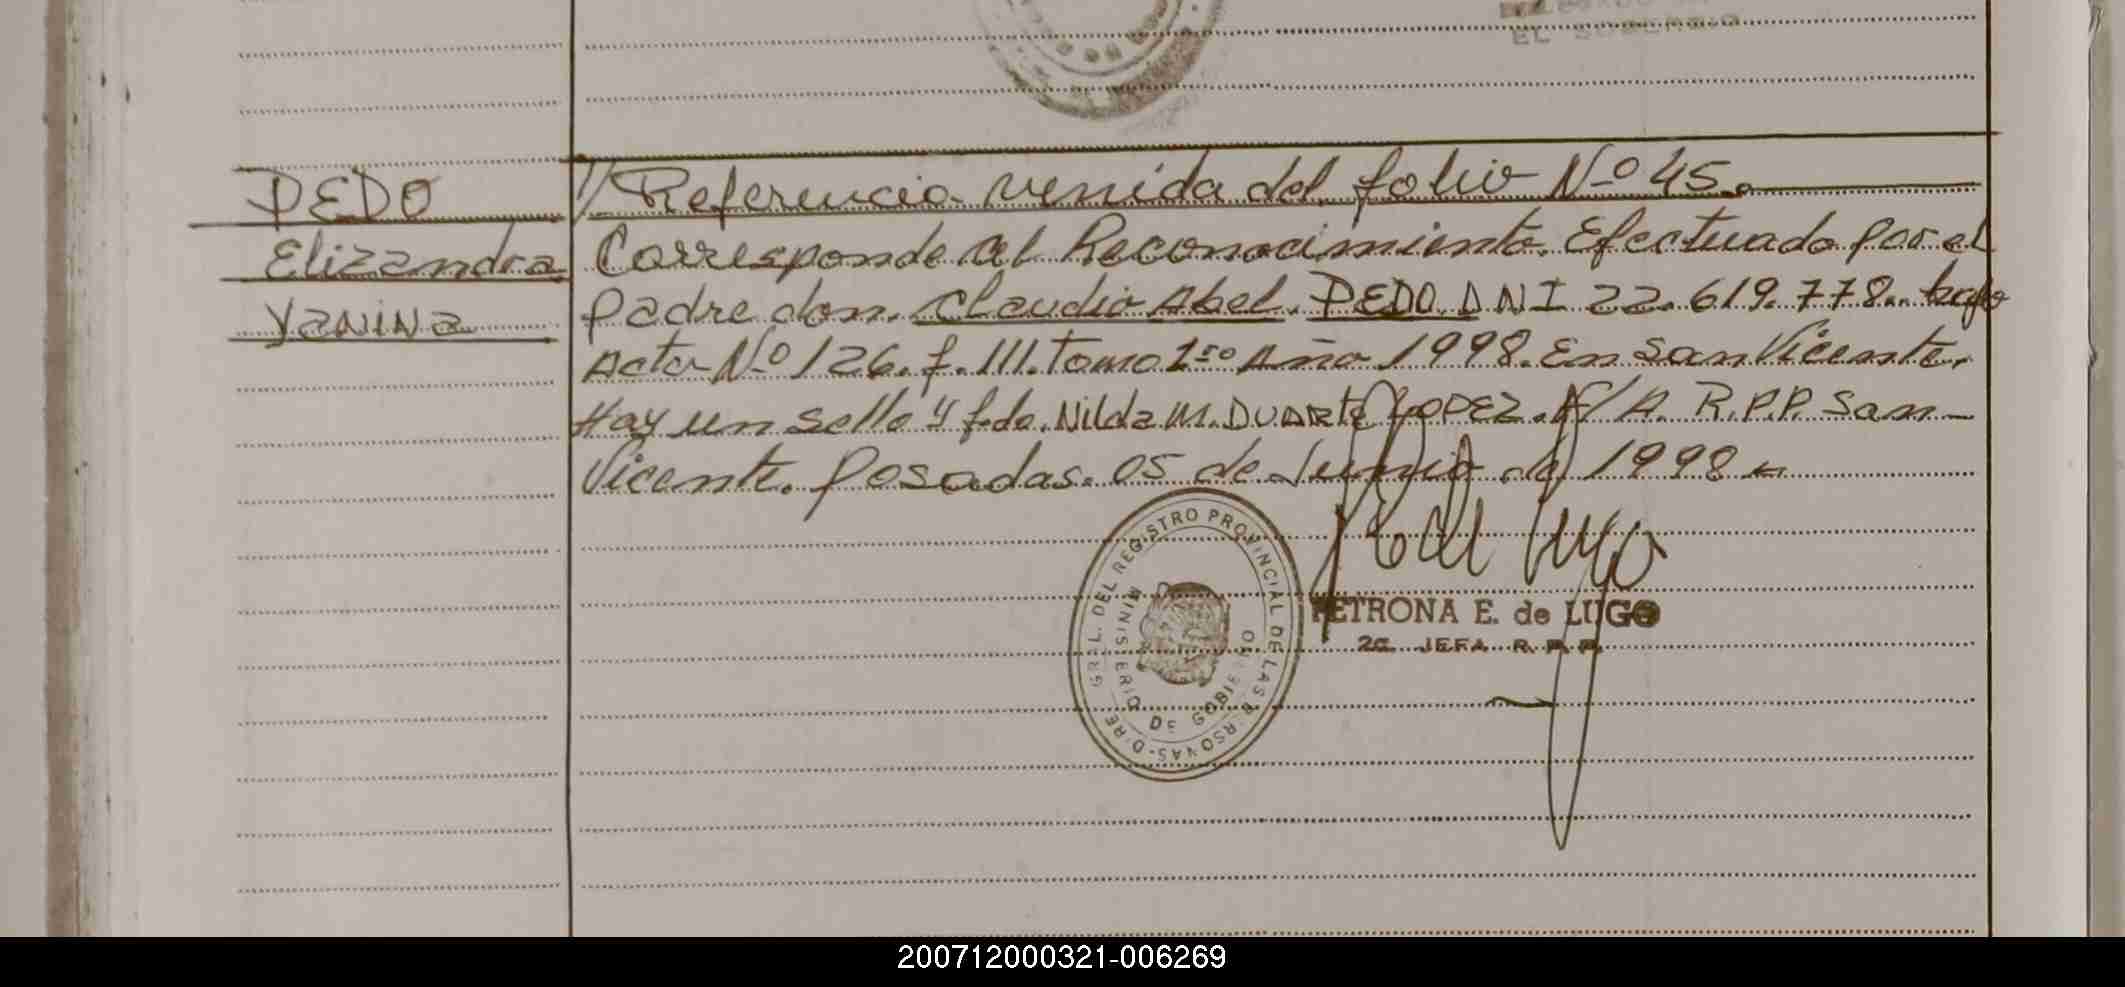 EL SOBERBIO
DEDO
Elizandra
Yanina
1// Referencia venida del folio Nº 45.
Corresponde al Reconocimiento Efectuado por el
padre don. Claudio Abel. DEDO DNI 22.619.778. bajo
Acta Nº 126. f. 111. Tomo 1ro Año 1998. En San Vicente.
Hay un sello y fdo. Nilda M. DUARTE LOPEZ. R.P.P. San
Vicente. Posadas. 05 de Junio de 1998
DIRE GRAL. DEL REGISTRO PROVINCIAL DE LAS PERSONAS
MINISTERIO DE GOBIERNO
PETRONA E. de LUGO
JEFA R. P. P.
200712000321-006269